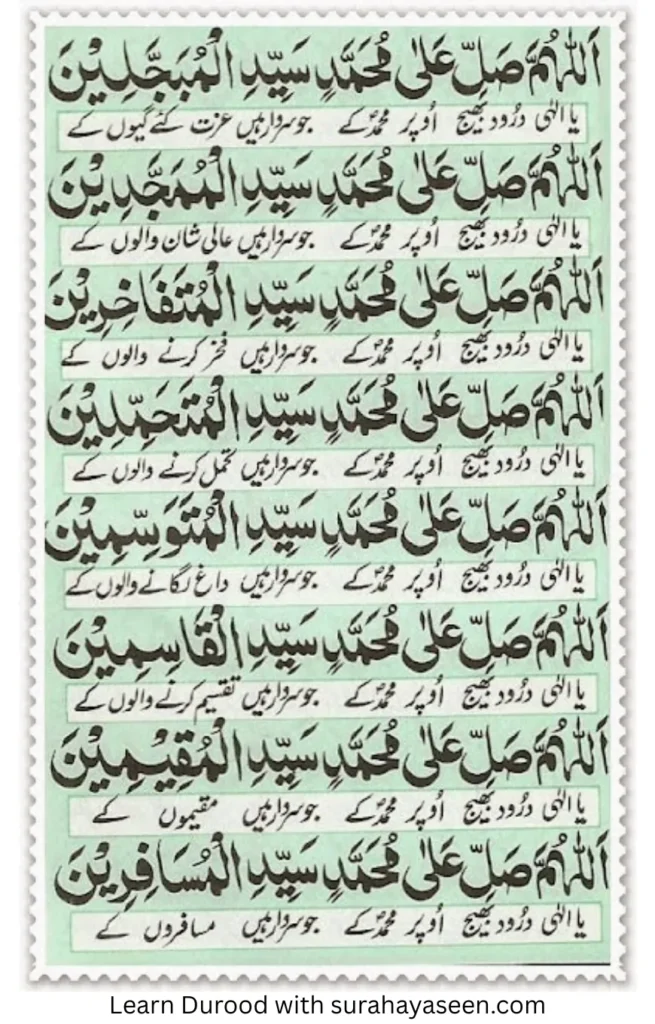 اَللّٰهُمَّ صَلِّ عَلٰى مُحَمَّدٍ سَيِّدِ الْمُبَجَّلِيْنَ
يا الٰہی درُود بھیج اُوپر محمدؐ کے جو سردار ہیں عزت کئے گیوں کے
اَللّٰهُمَّ صَلِّ عَلٰى مُحَمَّدٍ سَيِّدِ الْمُمَجَّدِيْنَ
يا الٰہی درُود بھیج اُوپر محمدؐ کے جو سردار ہیں عالی شان والوں کے
اَللّٰهُمَّ صَلِّ عَلٰى مُحَمَّدٍ سَيِّدِ الْمُتَفَاخِرِيْنَ
يا الٰہی درُود بھیج اُوپر محمدؐ کے جو سردار ہیں فخر کرنے والوں کے
اَللّٰهُمَّ صَلِّ عَلٰى مُحَمَّدٍ سَيِّدِ الْمُتَحَمِّلِيْنَ
يا الٰہی درُود بھیج اُوپر محمدؐ کے جو سردار ہیں تحمل کرنے والوں کے
اَللّٰهُمَّ صَلِّ عَلٰى مُحَمَّدٍ سَيِّدِ الْمُتَوَسِّمِيْنَ
يا الٰہی درُود بھیج اُوپر محمدؐ کے جو سردار ہیں داغ لگانے والوں کے
اَللّٰهُمَّ صَلِّ عَلٰى مُحَمَّدٍ سَيِّدِ الْقَاسِمِيْنَ
يا الٰہی درُود بھیج اُوپر محمدؐ کے جو سردار ہیں تقسیم کرنے والوں کے
اَللّٰهُمَّ صَلِّ عَلٰى مُحَمَّدٍ سَيِّدِ الْمُقِيْمِيْنَ
يا الٰہی درُود بھیج اُوپر محمدؐ کے جو سردار ہیں مقیموں کے
اَللّٰهُمَّ صَلِّ عَلٰى مُحَمَّدٍ سَيِّدِ الْمُسَافِرِيْنَ
يا الٰہی درُود بھیج اُوپر محمدؐ کے جو سردار ہیں مسافروں کے
Learn Durood with surahayaseen.com